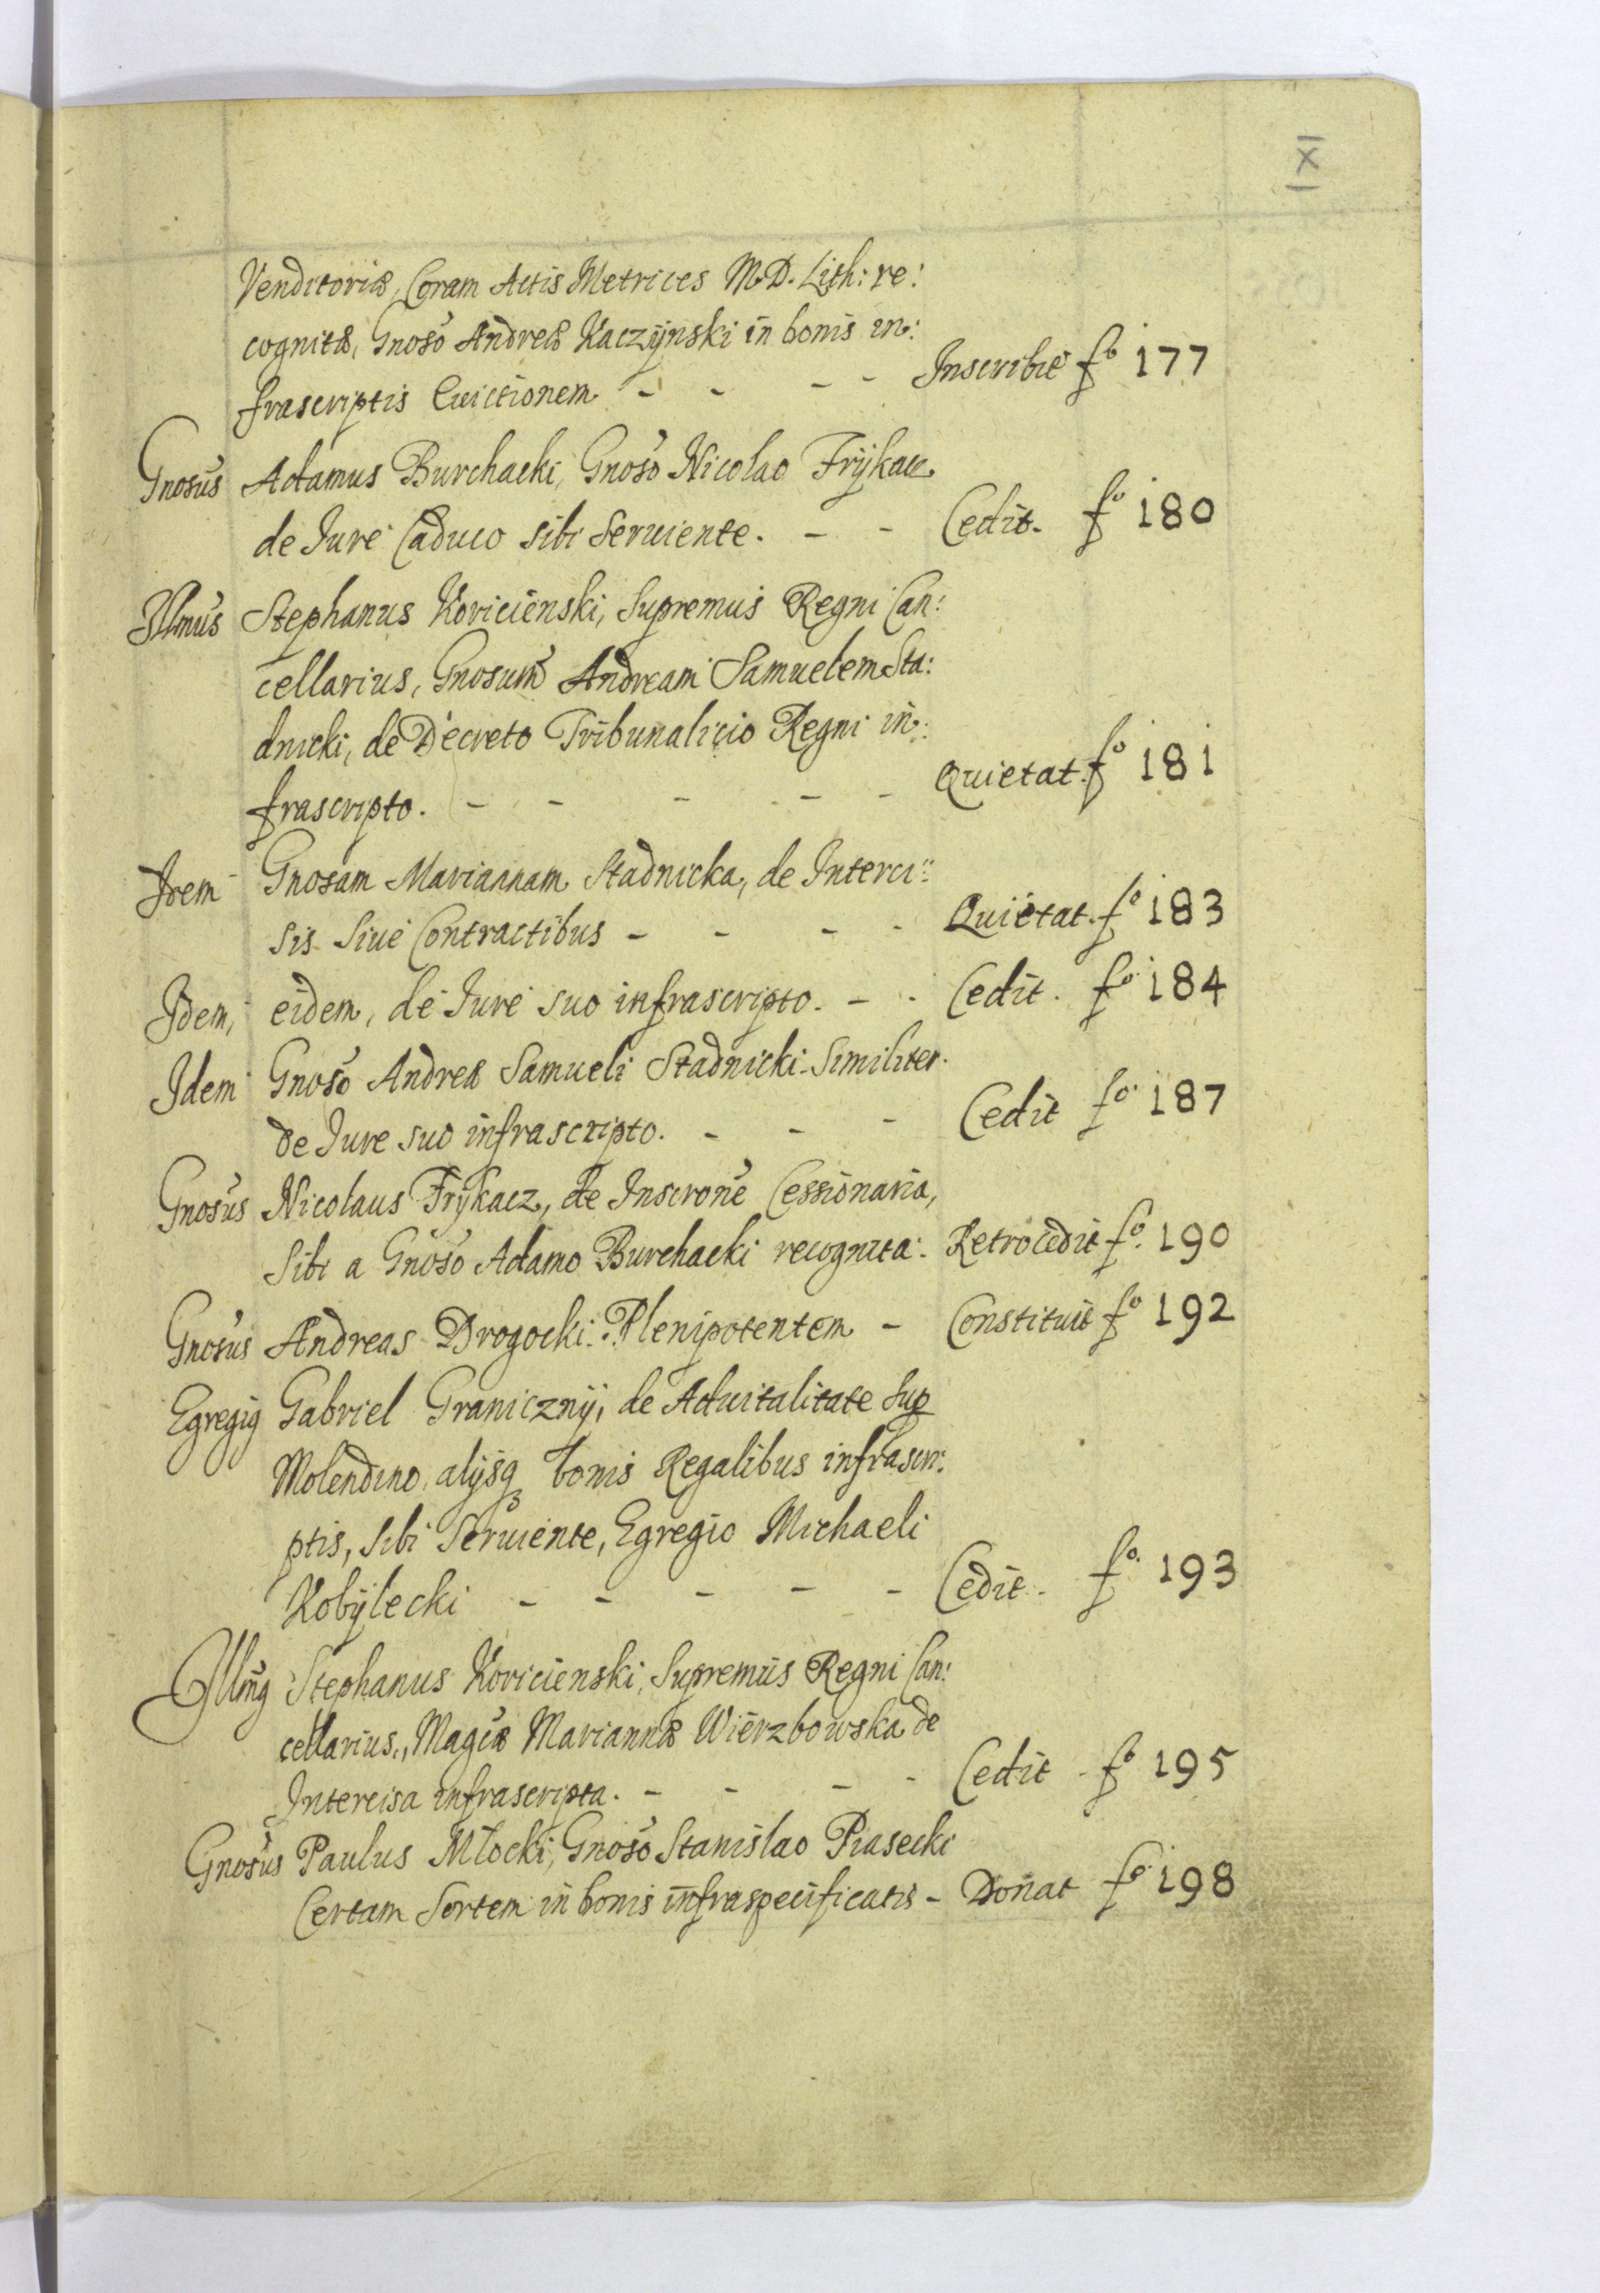 XI
Venditoriæ, Coram Actis Metrices M.D. Lith: re:
cognitæ, Gnoso Andreæ Kaczÿnski in bonis in:
frascriptis Euictionem - - - - Inscribit fo 177
Gnosus Adamus Burchacki, Gnoso Nicolao Frÿkacz
de Iure Caduco sibi seruiente. - - Cedit. fo 180
Illmus Stephanus Koricienski, Supremus Regni Can:
cellarius, Gnosum Andream Samuelem Sta:
dnicki, de Decreto Tribunalicio Regni in:
frascripto. - - - - - Quietat. fo 181
Idem Gnosam Mariannam Stadnicka, de Interci:
sis siue Contractibus - - - - Quietat. fo 183
Idem, eidem, de Iure suo infrascripto. - - Cedit. fo 184
Idem Gnoso Andreæ Samueli Stadnicki similiter
de Iure suo infrascripto. - - - Cedit fo 187
Gnosus Nicolaus Frÿkacz, de Inscrone Cessionaria,
sibi a Gnoso Adamo Burchacki recognita. Retrocedit fo 190
Gnosus Andreas Drogocki. Plenipotentem - Constituit fo 192
Egregig Gabriel Granicznÿ, de Aduitalitate sup
Molendino, alÿsq bonis Regalibus infrascri:
ptis, sibi seruiente, Egregio Michaeli
Kobÿlecki - - - - - Cedit. fo 193
Illmg Stephanus Koricienski, Supremus Regni Can:
cellarius, Magcæ Mariannæ Wierzbowska de
Intercisa infrascripta. - - - - Cedit fo 195
Gnosus Paulus Młocki, Gnoso Stanislao Piasecki
Certam Sortem in bonis infraspecificatis - Donat fo 198